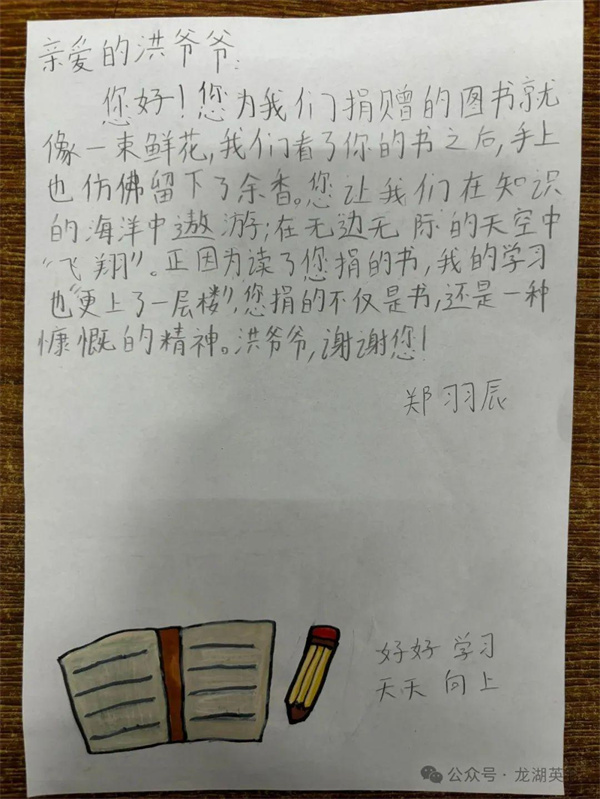 亲爱的洪爷爷:
您好!您为我们捐赠的图书就
像一束鲜花,我们看了你的书之后,手上
也仿佛留下了余香。您让我们在知识
的海洋中遨游;在无边无际的天空中
“飞翔”。正因为读了您捐的书,我的学习
也“更上了一层楼”,您捐的不仅是书,还是一种
慷慨的精神。洪爷爷,谢谢您!
郑羽辰
好好学习
天天向上
公众号·龙湖英